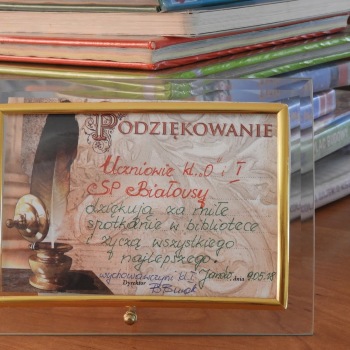 PODZIĘKOWANIE
Uczniowie kl. 0 i I
SP Białousy
dziękują za miłe
spotkanie w bibliotece
i życzą wszystkiego
najlepszego.
wychowawczyni kl. I
Dyrektor
dnia 9.05.18